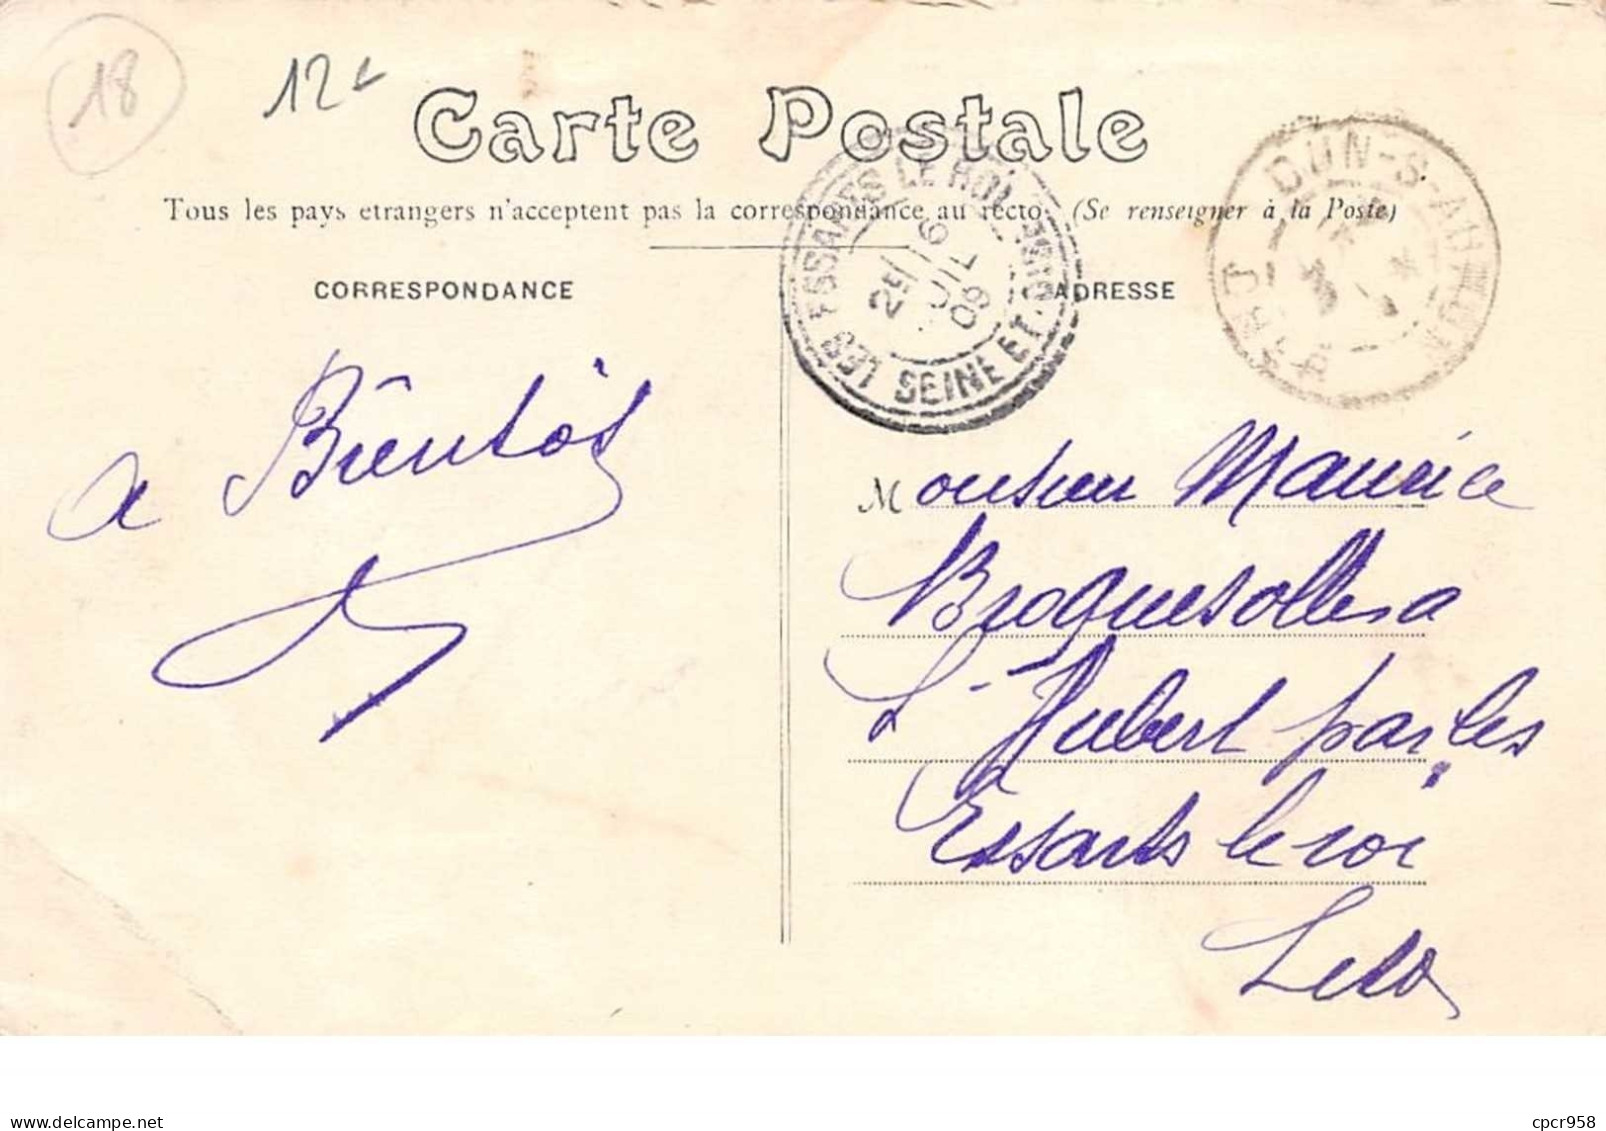 18
12
Carte Postale
Tous les pays etrangers n'acceptent pas la correspondance au recto. (Se renseigner à la Poste)
CORRESPONDANCE
ADRESSE
LES ESSARTS LE ROI SEINE ET OISE
25 16
JUIL
09
DUN-S-AURON
CHER
a Bientôt
Monsieur Maurice
St Hubert par les
Essarts le roi
delcampe.net
cpcr958